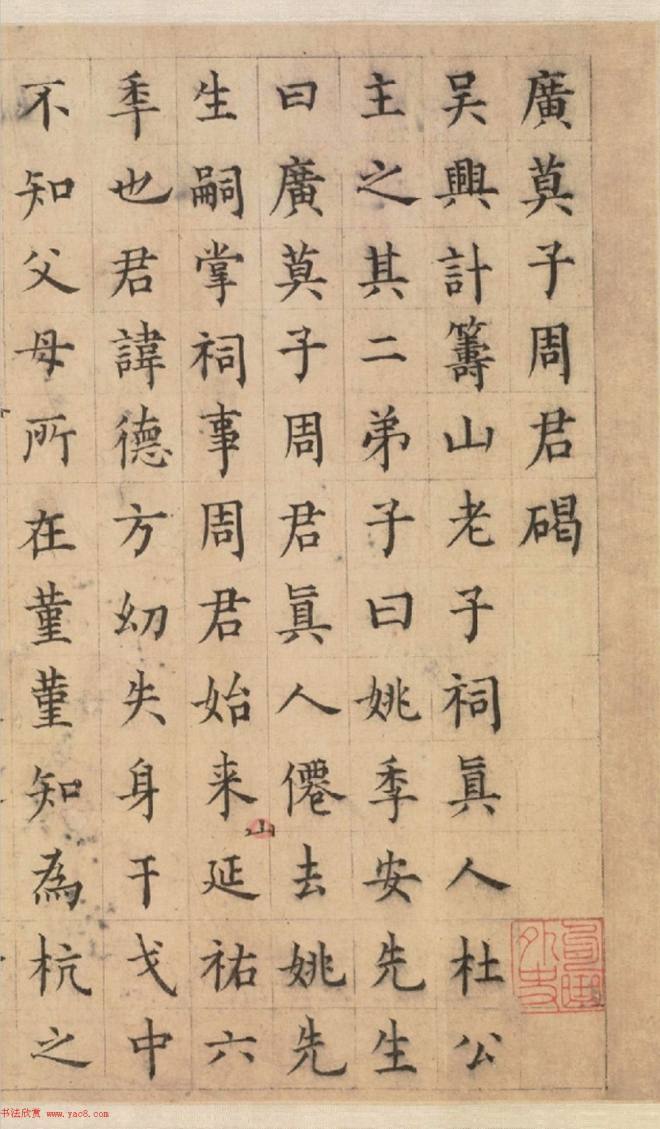 廣莫子周君碣
吴興計籌山老子祠眞人杜公
主之其二弟子曰姚季安先生
曰廣莫子周君眞人僊去姚先
生嗣掌祠事周君始来山延祐六
秊也君諱德方幼失身干戈中
不知父母所在菫菫知為杭之
书法欣赏 www.yac8.com